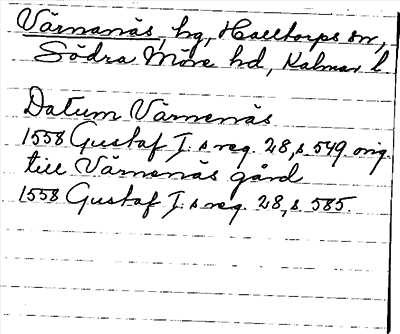 Värnanäs, hg, Halltorps sn,
Södra Möre hd, Kalmar l.
Datum Värnenäs
1558 Gustaf I:s reg. 28, s. 549 orig.
till Värnenäs gård
1558 Gustaf I:s reg. 28, s. 585.